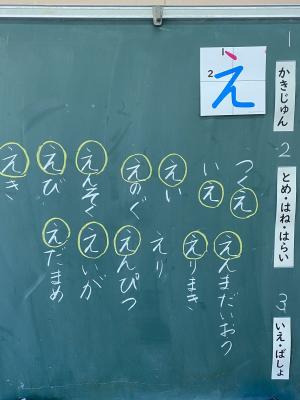 1
かきじゅん
2
とめ・はね・はらい
3
いえ・ばしょ
1
2
え
つくえ
いえ
えい
えのぐ
えんそく
えび
えき
えんまだいおう
えりまき
えり
えんぴつ
えいが
えだまめ